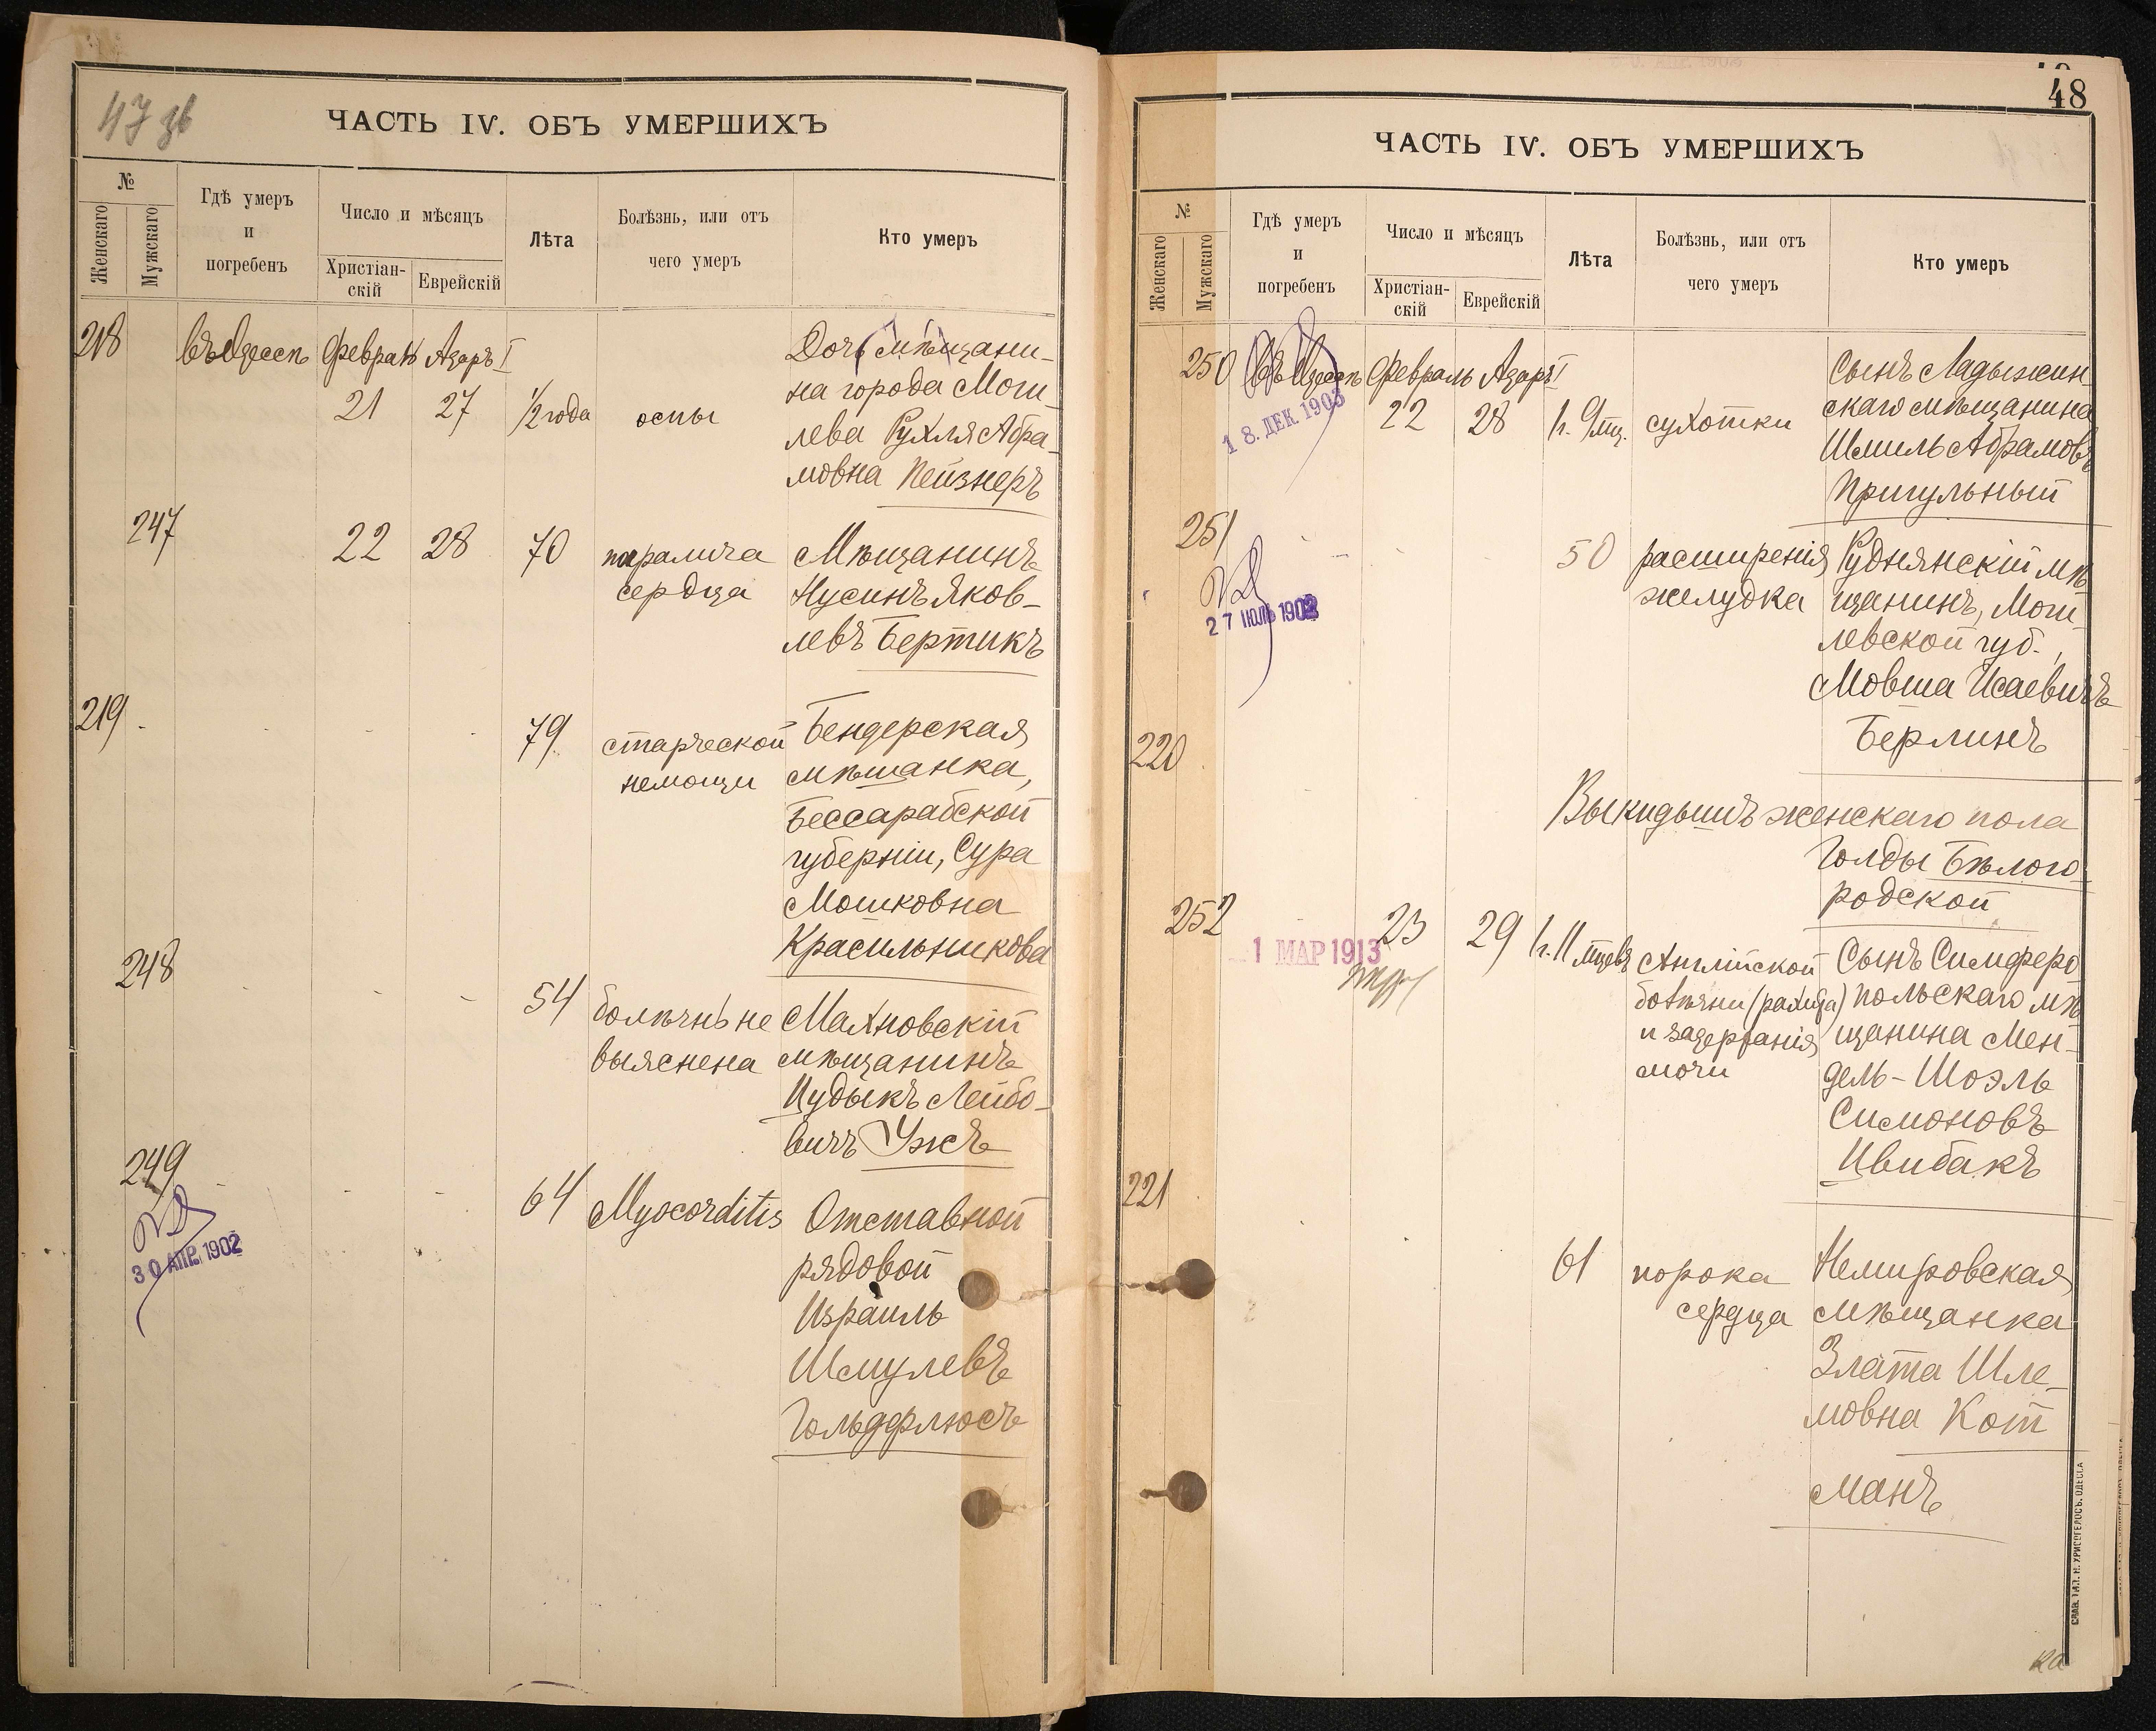 47 зв
ЧАСТЬ IV. ОБЪ УМЕРШИХЪ
№
Женскаго
Мужскаго
Гдѣ умеръ
и
погребенъ
Число и мѣсяцъ
Христіан-
скій
Еврейскій
Лѣта
Болѣзнь, или отъ
чего умеръ
Кто умеръ
218 въ Одессѣ Февраль Адаръ I
21 27 1/2 года оспы
Дочь мѣщани-
на города Моги-
лева Рухля Абра-
мовна Пейзнеръ
247 22 28 70 паралича
сердца
Мѣщанинъ
Нусинъ Яков-
левъ Бертикъ
219 - - - - 79 старческой
немощи
Бендерская
мѣщанка,
Бессарабской
губерніи, Сура
Мошковна
Красильникова
248 - - - 54 болѣзнь не
выяснена
Махновскій
мѣщанинъ
Иудыкъ Лейбо-
вичъ Ужъ
249 - - - 64 Myocorditis
30 АПР. 1902
Отставной
рядовой
Израиль
Шмулевъ
Гольдфлюсъ
48
ЧАСТЬ IV. ОБЪ УМЕРШИХЪ
№
Женскаго
Мужскаго
Гдѣ умеръ
и
погребенъ
Число и мѣсяцъ
Христіан-
скій
Еврейскій
Лѣта
Болѣзнь, или отъ
чего умеръ
Кто умеръ
250 въ Одессѣ Февраль Адаръ I
18. ДЕК. 1903
22 28 1 г. 9 мц. сухотки
Сынъ Ладыжин-
скаго мѣщанина
Шмиль Абрамовъ
Пригульный
251 - - - 50 расширенія
желудка
27 ИЮЛЬ 1902
Руднянскій мѣ-
щанинъ, Моги-
левской губ.,
Мовша Исаевичъ
Берлинъ
220
Выкидышъ женскаго пола
Голды Бѣлого-
родской
252 - 23 29 1 г. 11 мцевъ Англійской
болѣзни (рахита)
и задержанія
мочи
1 МАР 1913
Сынъ Симферо
польскаго мѣ
щанина Мен-
дель-Шоэль
Симоновъ
Цвибакъ
221
61 порока
сердца
Немировская
мѣщанка
Злата Шле-
мовна Кот
манъ
СЛАВ. ТИП. Н. ХРИСОГЕЛОСЪ. ОДЕССА